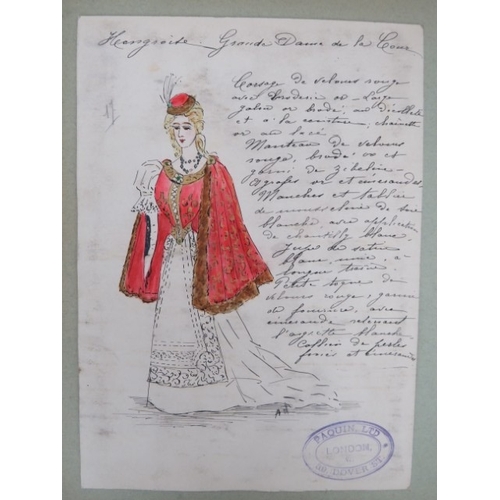 Hongroise. Grande Dame de la Cour
Corsage de velours rouge
avec broderie or - Large
galon or brodé, au décolleté
et à la ceinture, chainette
or au lacé
Manteau de velours
rouge, brodé or et
garni de Zibeline -
agrafes or et émeraudes
Manches et tablier
de mousseline de soie
blanche avec application
de chantilly blanc,
Jupe de satin
blanc, unie, à
longue traine.
Petite toque de
velours rouge, garnie
de fourrure, avec
émeraude retenant
l'aigrette blanche
Collier de perles
fines et émeraudes
PAQUIN, LTD.
LONDON,
39, DOVER ST.